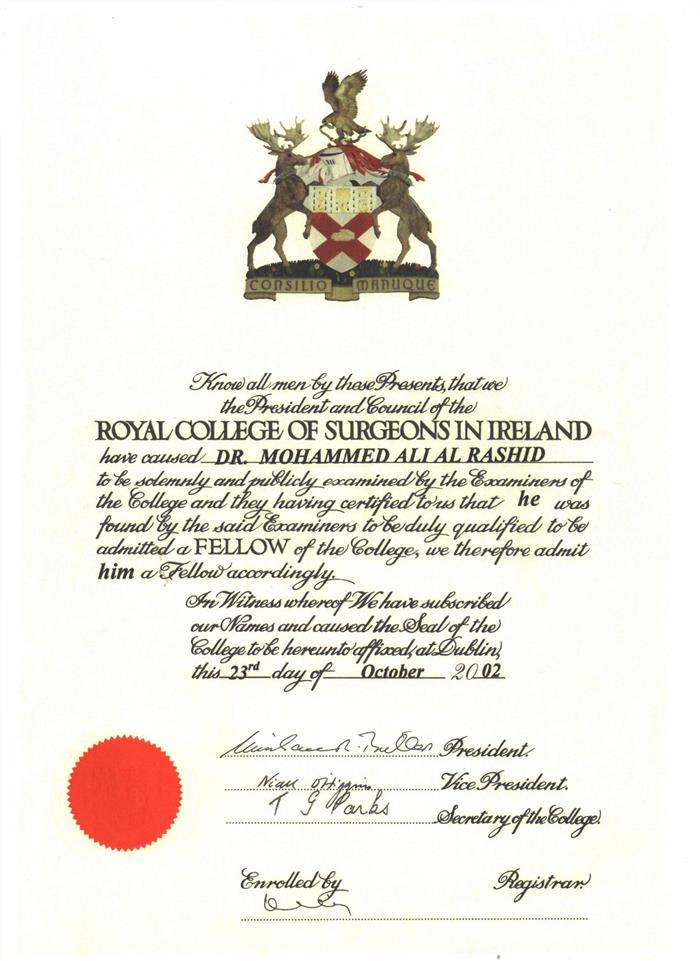 CONSILIO MANUQUE
Know all men by these Presents, that we
the President and Council of the
ROYAL COLLEGE OF SURGEONS IN IRELAND
have caused DR. MOHAMMED ALI AL RASHID
to be solemnly and publicly examined by the Examiners of
the College and they having certified to us that he was
found by the said Examiners to be duly qualified to be
admitted a FELLOW of the College, we therefore admit
him a Fellow accordingly.
In Witness whereof We have subscribed
our Names and caused the Seal of the
College to be hereunto affixed, at Dublin,
this 23rd day of October 2002
President.
Niall O'Higgins Vice President.
T G Parks
Secretary of the College.
Enrolled by Registrar